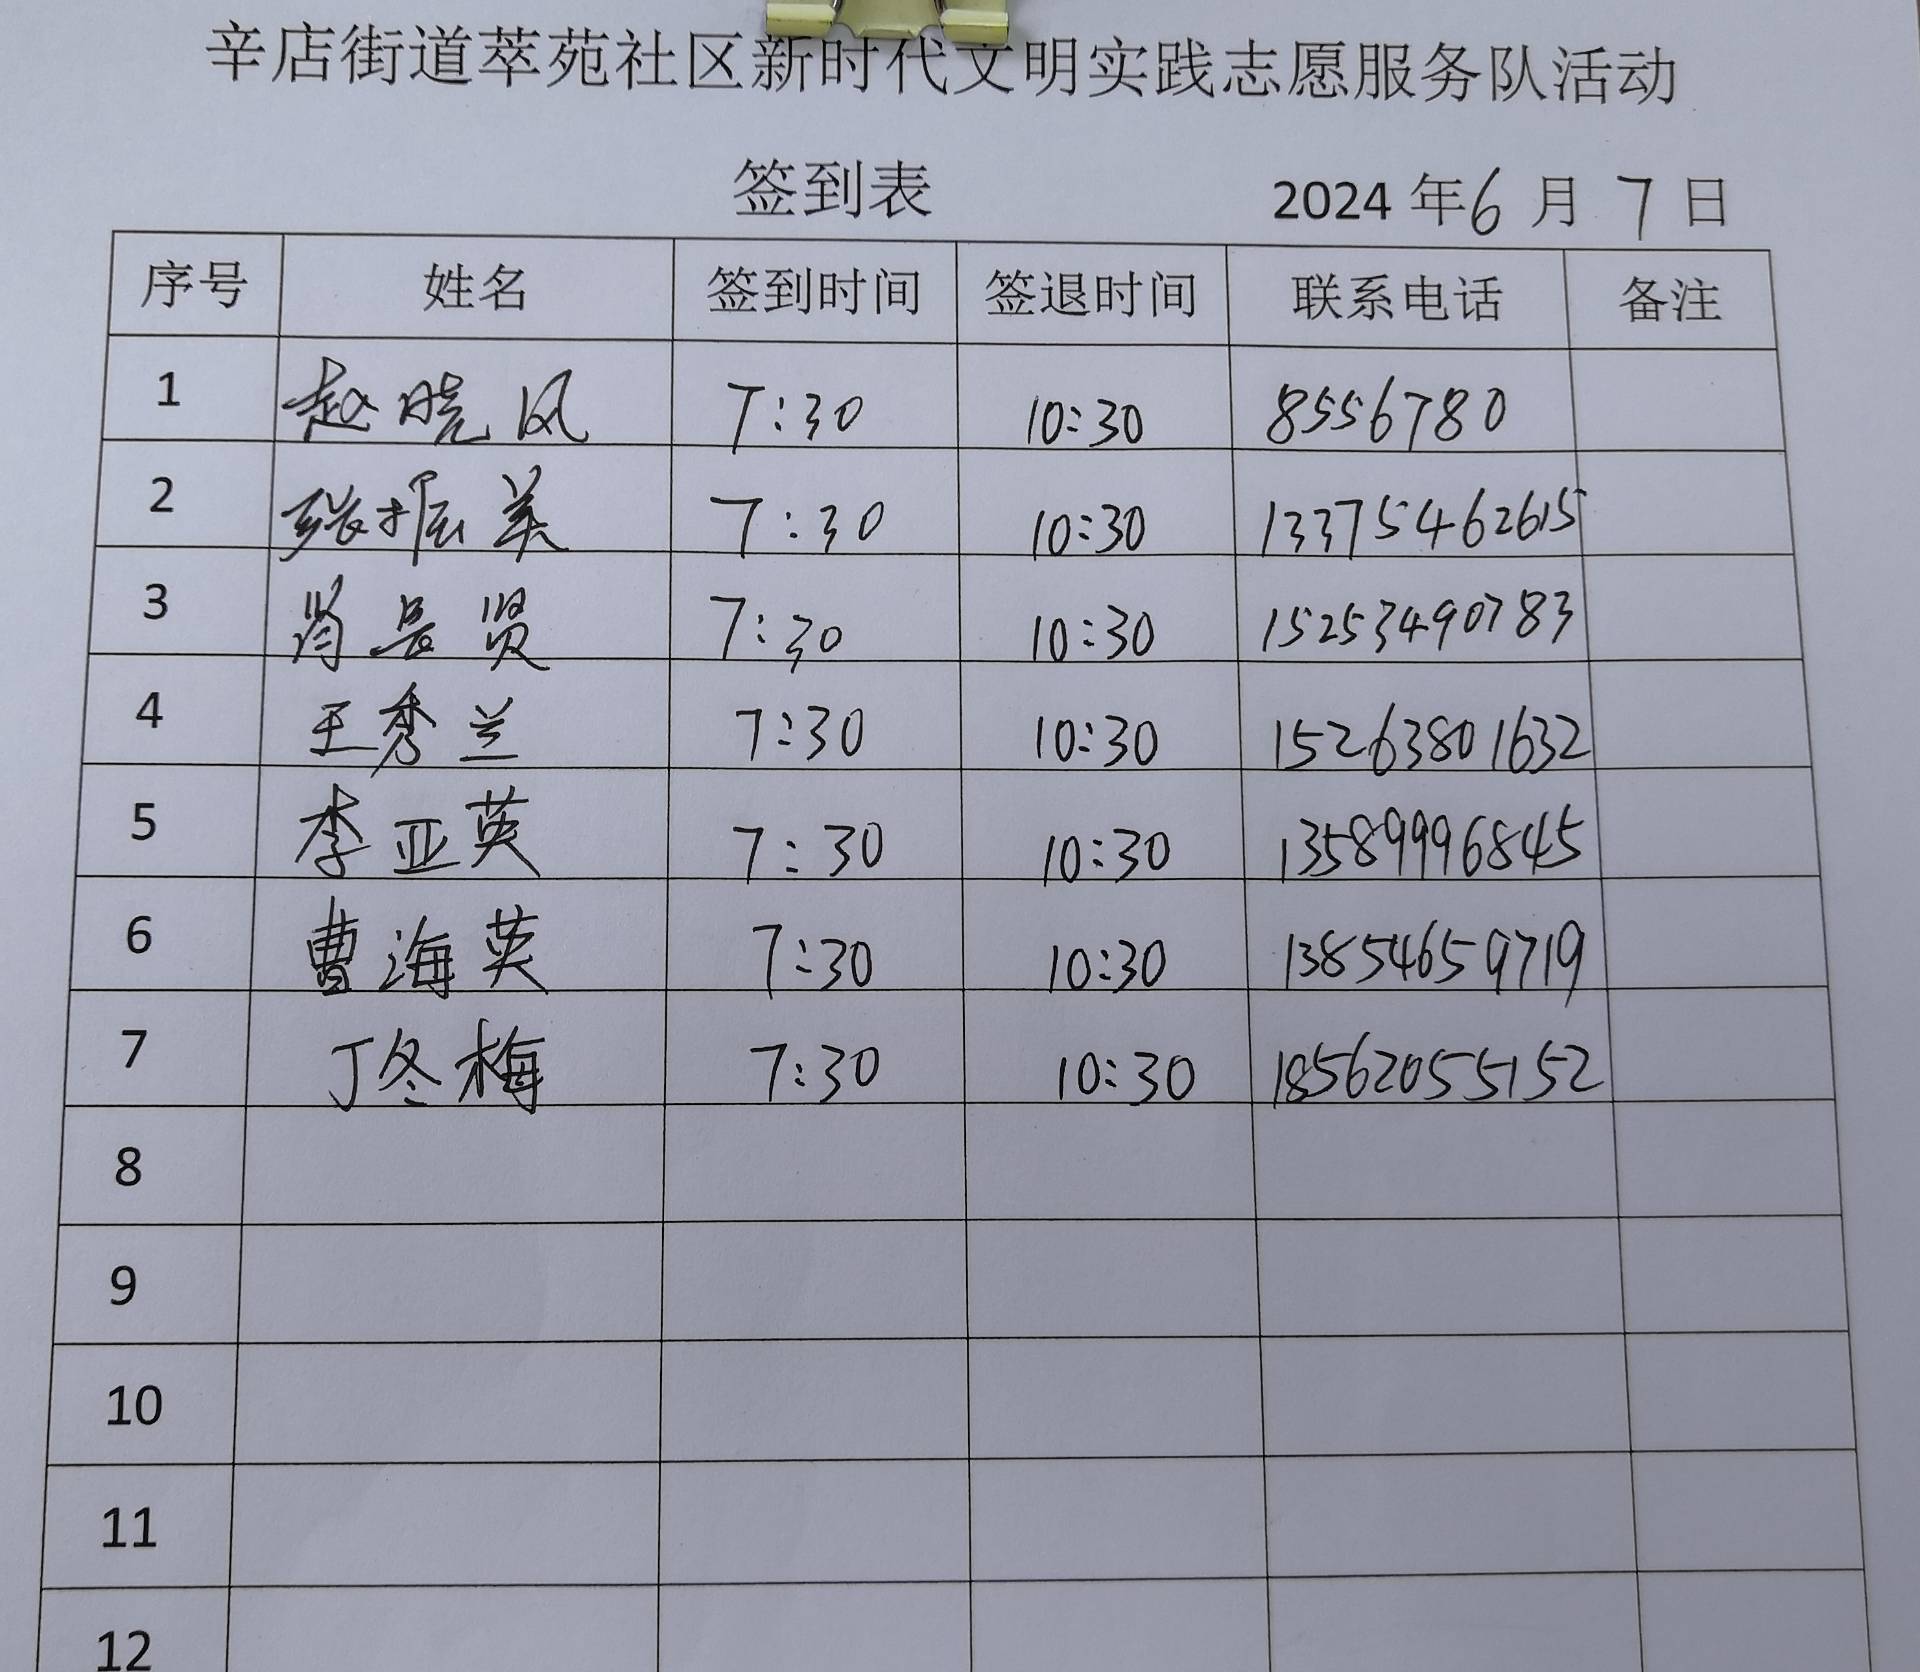 辛店街道萃苑社区新时代文明实践志愿服务队活动
签到表 2024 年 6 月 7 日
序号 姓名 签到时间 签退时间 联系电话 备注
1 赵晓风 7:30 10:30 8556780
2 张振英 7:30 10:30 13375462615
3 肖长贤 7:30 10:30 15253490783
4 王秀兰 7:30 10:30 15263801632
5 李亚英 7:30 10:30 13589996845
6 曹海英 7:30 10:30 13854659719
7 丁冬梅 7:30 10:30 18562055152
8
9
10
11
12